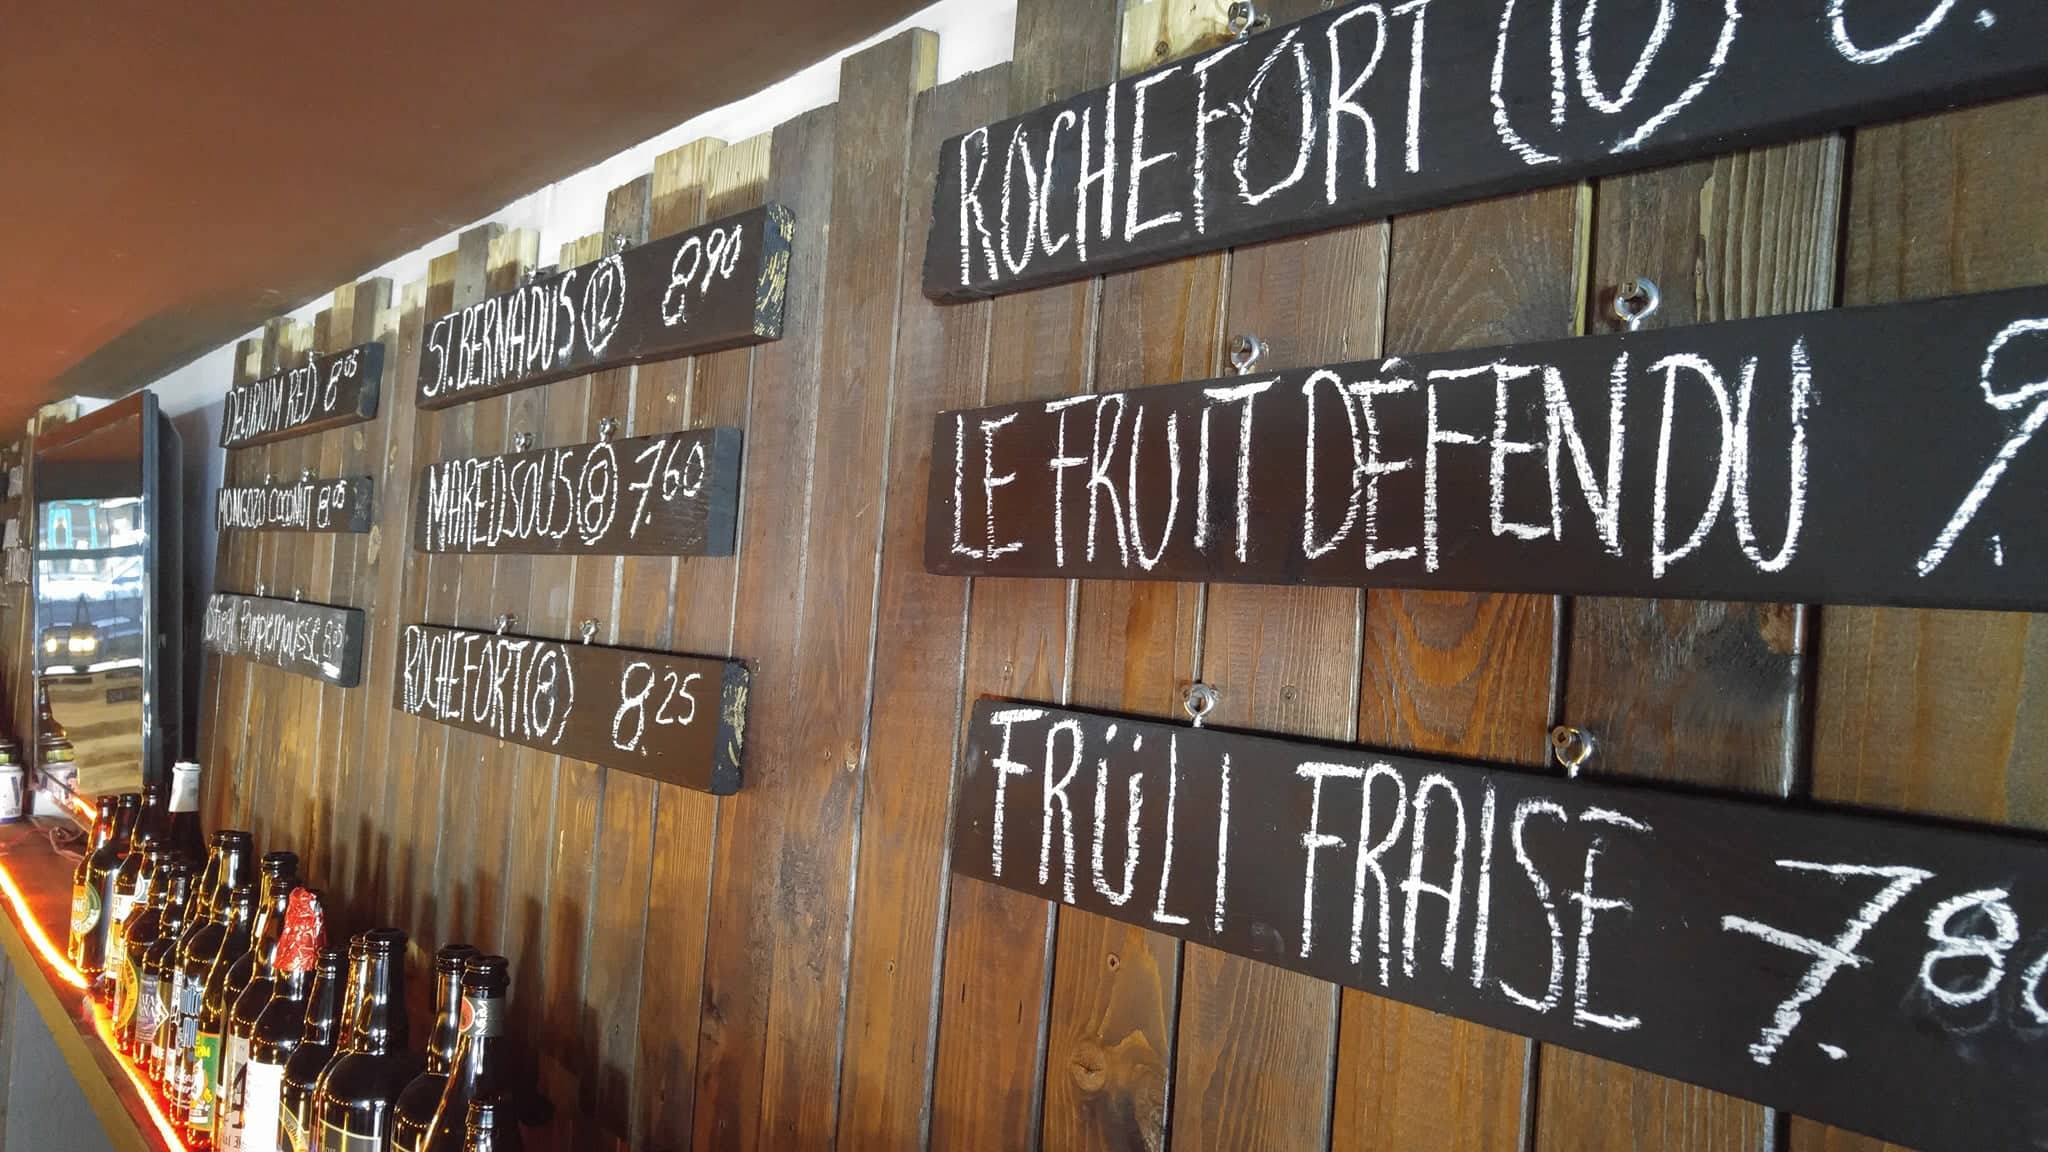 DELIRIUM RED 8.05
MONGOZO COCONUT 8.05
Stiegl Pamplemousse 8.05
ST. BERNADUS (12) 8.90
MAREDSOUS (8) 7.60
ROCHEFORT (8) 8.25
ROCHEFORT (10)
LE FRUIT DÉFENDU 9.
FRÜLI FRAISE 7.80